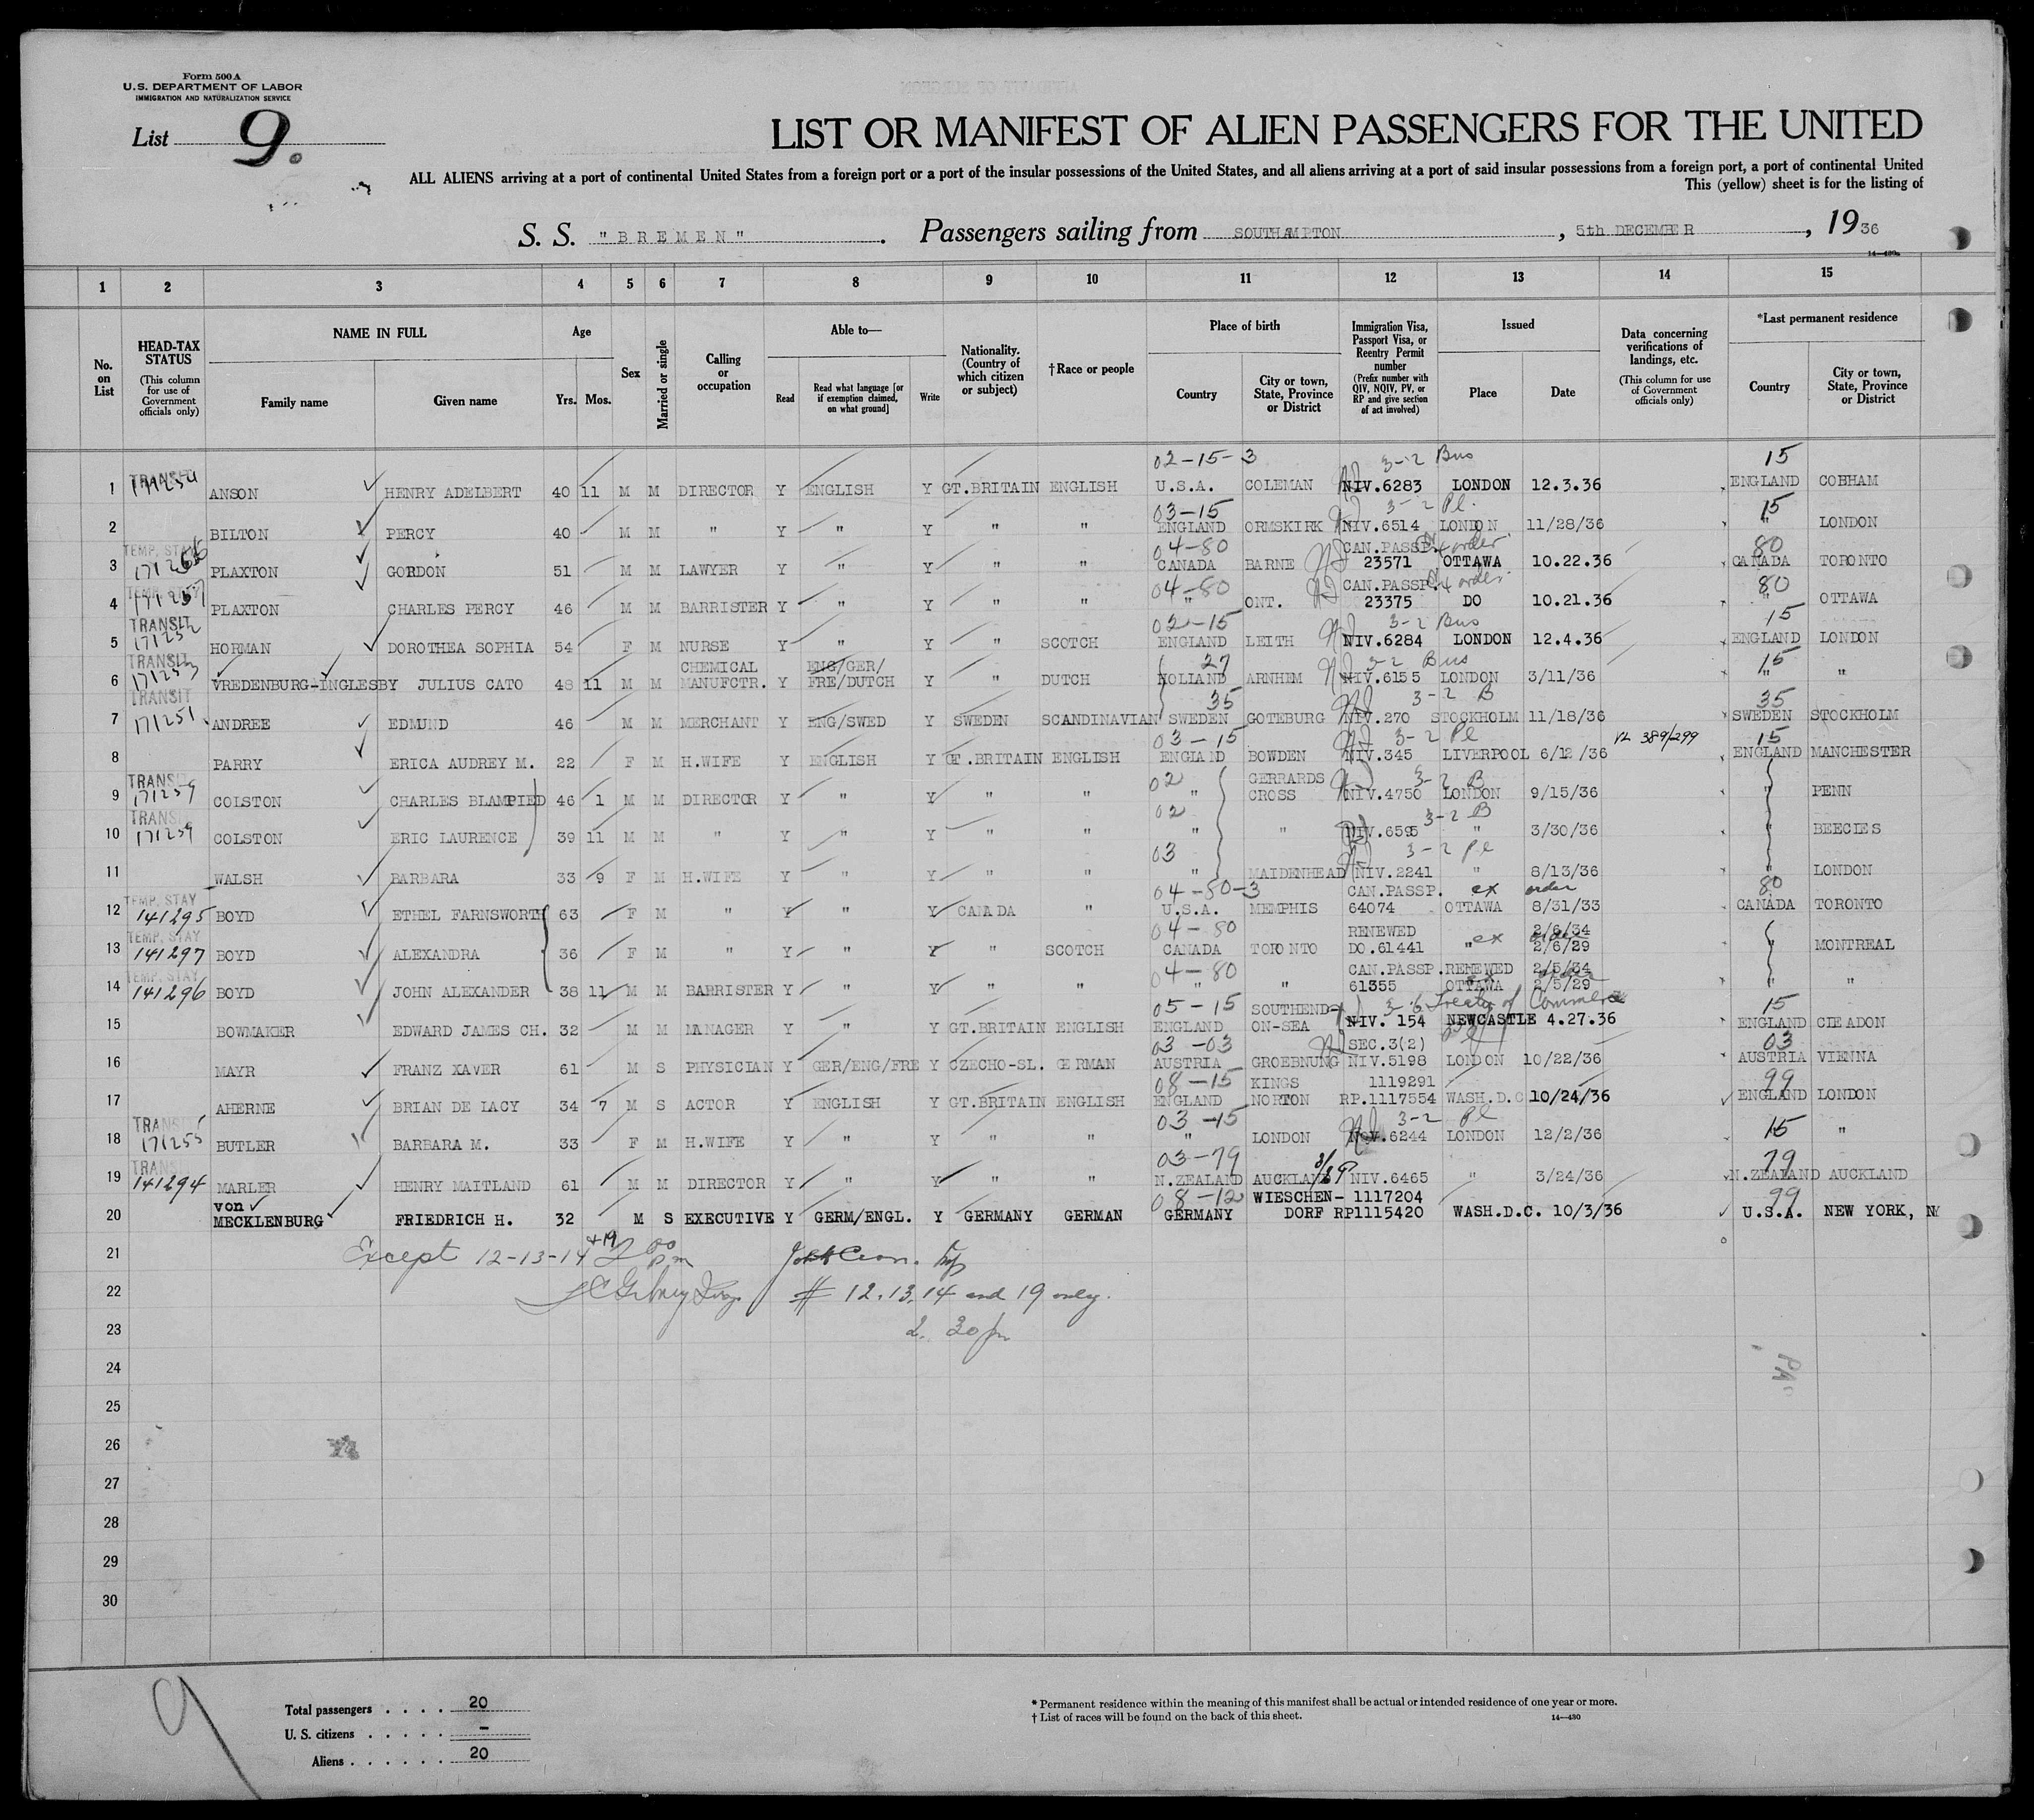 Form 500 A
U.S. DEPARTMENT OF LABOR
IMMIGRATION AND NATURALIZATION SERVICE
List 9.
LIST OR MANIFEST OF ALIEN PASSENGERS FOR THE UNITED
ALL ALIENS arriving at a port of continental United States from a foreign port or a port of the insular possessions of the United States, and all aliens arriving at a port of said insular possessions from a foreign port, a port of continental United
This (yellow) sheet is for the listing of
S. S. "BREMEN". Passengers sailing from SOUTHAMPTON, 5th DECEMBER, 1936
14—480
1 2 3 4 5 6 7 8 9 10 11 12 13 14 15
No. on List
HEAD-TAX STATUS (This column for use of Government officials only)
NAME IN FULL
Family name
Given name
Age
Yrs. Mos.
Sex
Married or single
Calling or occupation
Able to—
Read
Read what language [or if exemption claimed, on what ground]
Write
Nationality. (Country of which citizen or subject)
†Race or people
Place of birth
Country
City or town, State, Province or District
Immigration Visa, Passport Visa, or Reentry Permit number (Prefix number with QIV, NQIV, PV, or RP and give section of act involved)
Issued
Place
Date
Data concerning verifications of landings, etc. (This column for use of Government officials only)
*Last permanent residence
Country
City or town, State, Province or District
02-15-3 3-2 Bus 15
1 TRANSIT 171254 ANSON HENRY ADELBERT 40 11 M M DIRECTOR Y ENGLISH Y GT.BRITAIN ENGLISH U.S.A. COLEMAN NIV.6283 LONDON 12.3.36 ENGLAND COBHAM
03-15 3-2 Pl. 15
2 BILTON PERCY 40 M M " Y " Y " " ENGLAND ORMSKIRK NIV.6514 LONDON 11/28/36 " LONDON
TEMP. STAY 04-80 CAN.PASSP. ex order 80
3 PLAXTON GORDON 51 M M LAWYER Y " Y " " CANADA BARNE 23571 OTTAWA 10.22.36 CANADA TORONTO
TEMP. STAY 171257 04-80 CAN.PASSP. ex order 80
4 PLAXTON CHARLES PERCY 46 M M BARRISTER Y " Y " " " ONT. 23375 DO 10.21.36 " OTTAWA
TRANSIT 171252 02-15 3-2 Bus 15
5 HORMAN DOROTHEA SOPHIA 54 F M NURSE Y " Y " SCOTCH ENGLAND LEITH NIV.6284 LONDON 12.4.36 ENGLAND LONDON
TRANSIT 171253 CHEMICAL ENG/GER/ 27 3-2 Bus 15
6 VREDENBURG-INGLESBY JULIUS CATO 48 11 M M MANUFCTR. Y FRE/DUTCH Y " DUTCH HOLLAND ARNHEM NIV.6155 LONDON 3/11/36 " "
TRANSIT 35 3-2 B 35
7 171251 ANDREE EDMUND 46 M M MERCHANT Y ENG/SWED Y SWEDEN SCANDINAVIAN SWEDEN GOTEBURG NIV.270 STOCKHOLM 11/18/36 SWEDEN STOCKHOLM
03-15 3-2 Pl 389/299 15
8 PARRY ERICA AUDREY M. 22 F M H.WIFE Y ENGLISH Y GT.BRITAIN ENGLISH ENGLAND BOWDEN NIV.345 LIVERPOOL 6/12/36 ENGLAND MANCHESTER
TRANSIT 02 GERRARDS 3-2 B
9 171259 COLSTON CHARLES BLAMPIED 46 1 M M DIRECTOR Y " Y " " " CROSS NIV.4750 LONDON 9/15/36 " PENN
TRANSIT 02 3-2 B
10 171259 COLSTON ERIC LAURENCE 39 11 M M " Y " Y " " " " NIV.6595 " 3/30/36 " BEECIES
03 3-2 Pl
11 WALSH BARBARA 33 9 F M H.WIFE Y " Y " " " MAIDENHEAD NIV.2241 " 8/13/36 " LONDON
TEMP. STAY 04-80-3 CAN.PASSP. ex order 80
12 141295 BOYD ETHEL FARNSWORTH 63 F M " Y " Y CANADA " U.S.A. MEMPHIS 64074 OTTAWA 8/31/33 CANADA TORONTO
TEMP. STAY 04-80 RENEWED 2/6/34
13 141297 BOYD ALEXANDRA 36 F M " Y " Y " SCOTCH CANADA TORONTO DO.61441 " ex order 2/6/29 " MONTREAL
TEMP. STAY 04-80 CAN.PASSP. RENEWED 2/5/34
14 141296 BOYD JOHN ALEXANDER 38 11 M M BARRISTER Y " Y " " " " 61355 OTTAWA 2/5/29 " "
05-15 SOUTHEND- 3-6 Treaty of Commerce 15
15 BOWMAKER EDWARD JAMES CH. 32 M M MANAGER Y " Y GT.BRITAIN ENGLISH ENGLAND ON-SEA NIV. 154 NEWCASTLE 4.27.36 ENGLAND CLEADON
03-03 SEC.3(2) Pl 03
16 MAYR FRANZ XAVER 61 M S PHYSICIAN Y GER/ENG/FRE Y CZECHO-SL. GERMAN AUSTRIA GROEBNUNG NIV.5198 LONDON 10/22/36 AUSTRIA VIENNA
08-15 KINGS 1119291 99
17 AHERNE BRIAN DE LACY 34 7 M S ACTOR Y ENGLISH Y GT.BRITAIN ENGLISH ENGLAND NORTON RP.1117554 WASH.D.C 10/24/36 ENGLAND LONDON
TRANSIT 03-15 3-2 Pl
18 171255 BUTLER BARBARA M. 33 F M H.WIFE Y " Y " " " LONDON NIV.6244 LONDON 12/2/36 15 "
TRANSIT 03-79 79
19 141294 MARLER HENRY MAITLAND 61 M M DIRECTOR Y " Y " " N.ZEALAND AUCKLAND NIV.6465 " 3/24/36 N.ZEALAND AUCKLAND
von 08-12 WIESCHEN- 1117204 99
20 MECKLENBURG FRIEDRICH H. 32 M S EXECUTIVE Y GERM/ENGL. Y GERMANY GERMAN GERMANY DORF RP1115420 WASH.D.C. 10/3/36 U.S.A. NEW YORK, NY
21 Except 12-13-14 +19 2 00 pm
22 # 12.13.14 and 19 only.
23 2. 30 pm
24
25
26
27
28
29
30
9
Total passengers . . . . 20
U. S. citizens . . . . . –
Aliens . . . . . . 20
* Permanent residence within the meaning of this manifest shall be actual or intended residence of one year or more.
† List of races will be found on the back of this sheet.
14—480